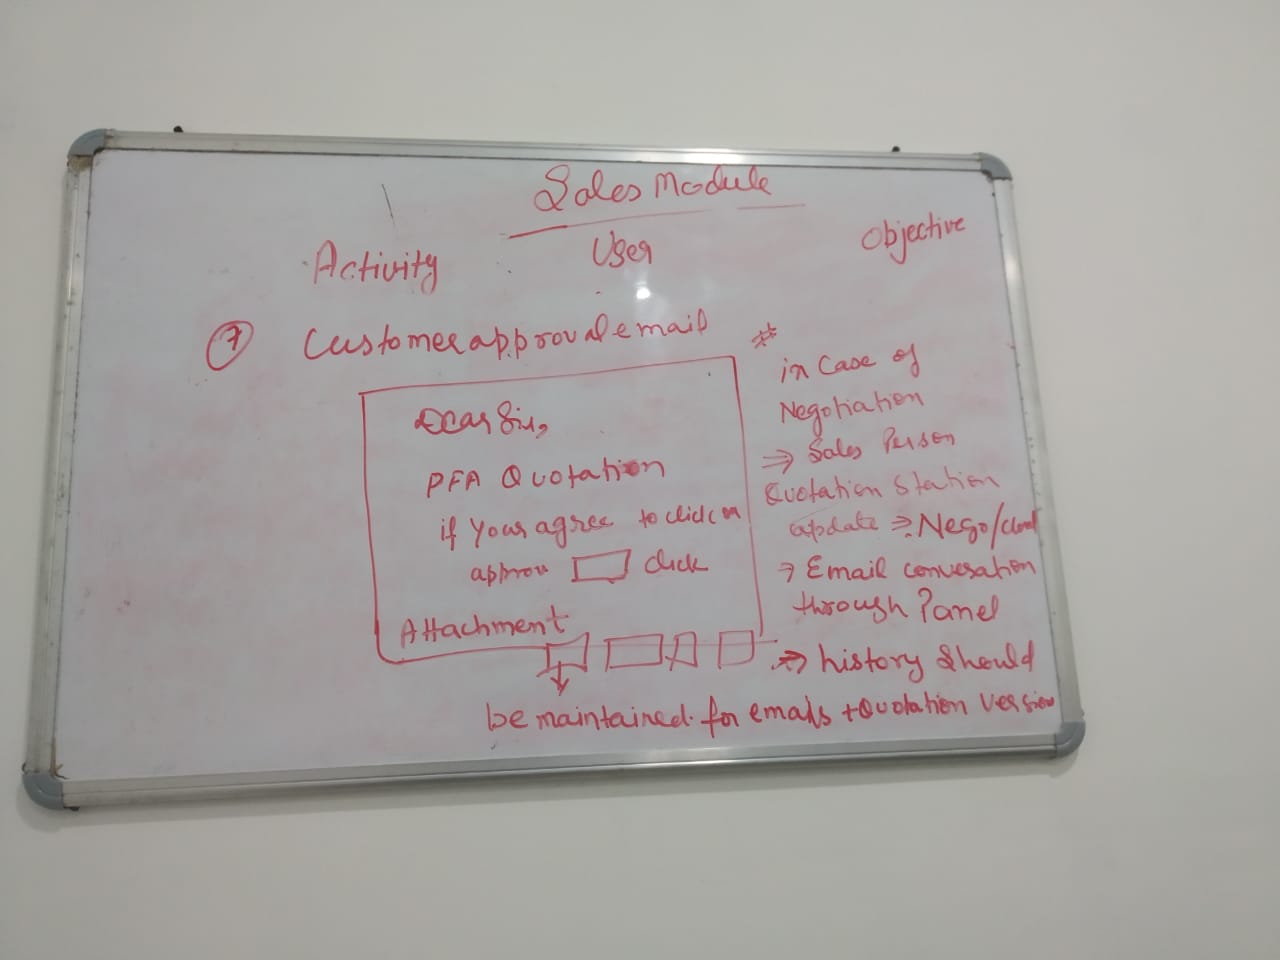 Sales Module
Activity User Objective
7 Customer approval email
Dear Sir,
PFA Quotation
if your agree to click on
approv click
Attachment
#
in Case of
Negotiation
⇒ Sales Person
Quotation Station
update ⇒ Nego/
→ Email conversation
through Panel
⇒ history should
be maintained for emails + Quotation Version